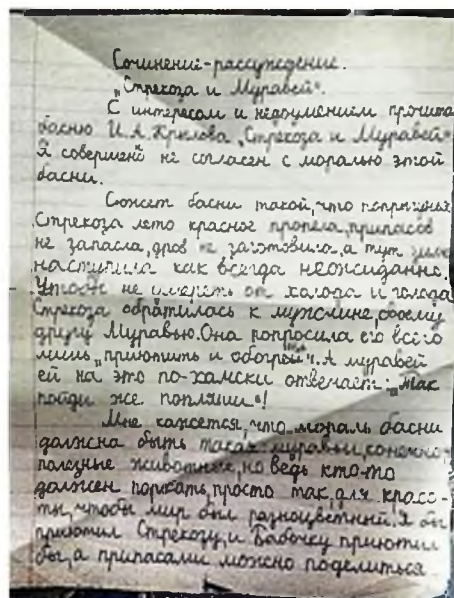 Сочинение-рассуждение.
„Стрекоза и Муравей".
С интересом и недоумением прочитал
басню И.А. Крылова „Стрекоза и Муравей".
Я совершено не согласен с моралью этой
басни.
Сюжет басни такой, что попрыгунья
Стрекоза лето красное пропела, припасов
не запасла, дров не заготовила, а тут зима
наступила как всегда неожиданно.
Чтобы не умереть от холода и голода
Стрекоза обратилась к мужчине, своему
другу Муравью. Она попросила его всего
лишь „приютить и обогреть". А муравей
ей на это по-хамски отвечает: „Так
пойди же попляши"!
Мне кажется, что мораль басни
должна быть такая: муравьи, конечно,
полезные животные, но ведь кто-то
должен порхать просто так, для красо-
ты, чтобы мир был разноцветный. Я бы
приютил Стрекозу, и Бабочку приютил
бы, а припасами можно поделиться